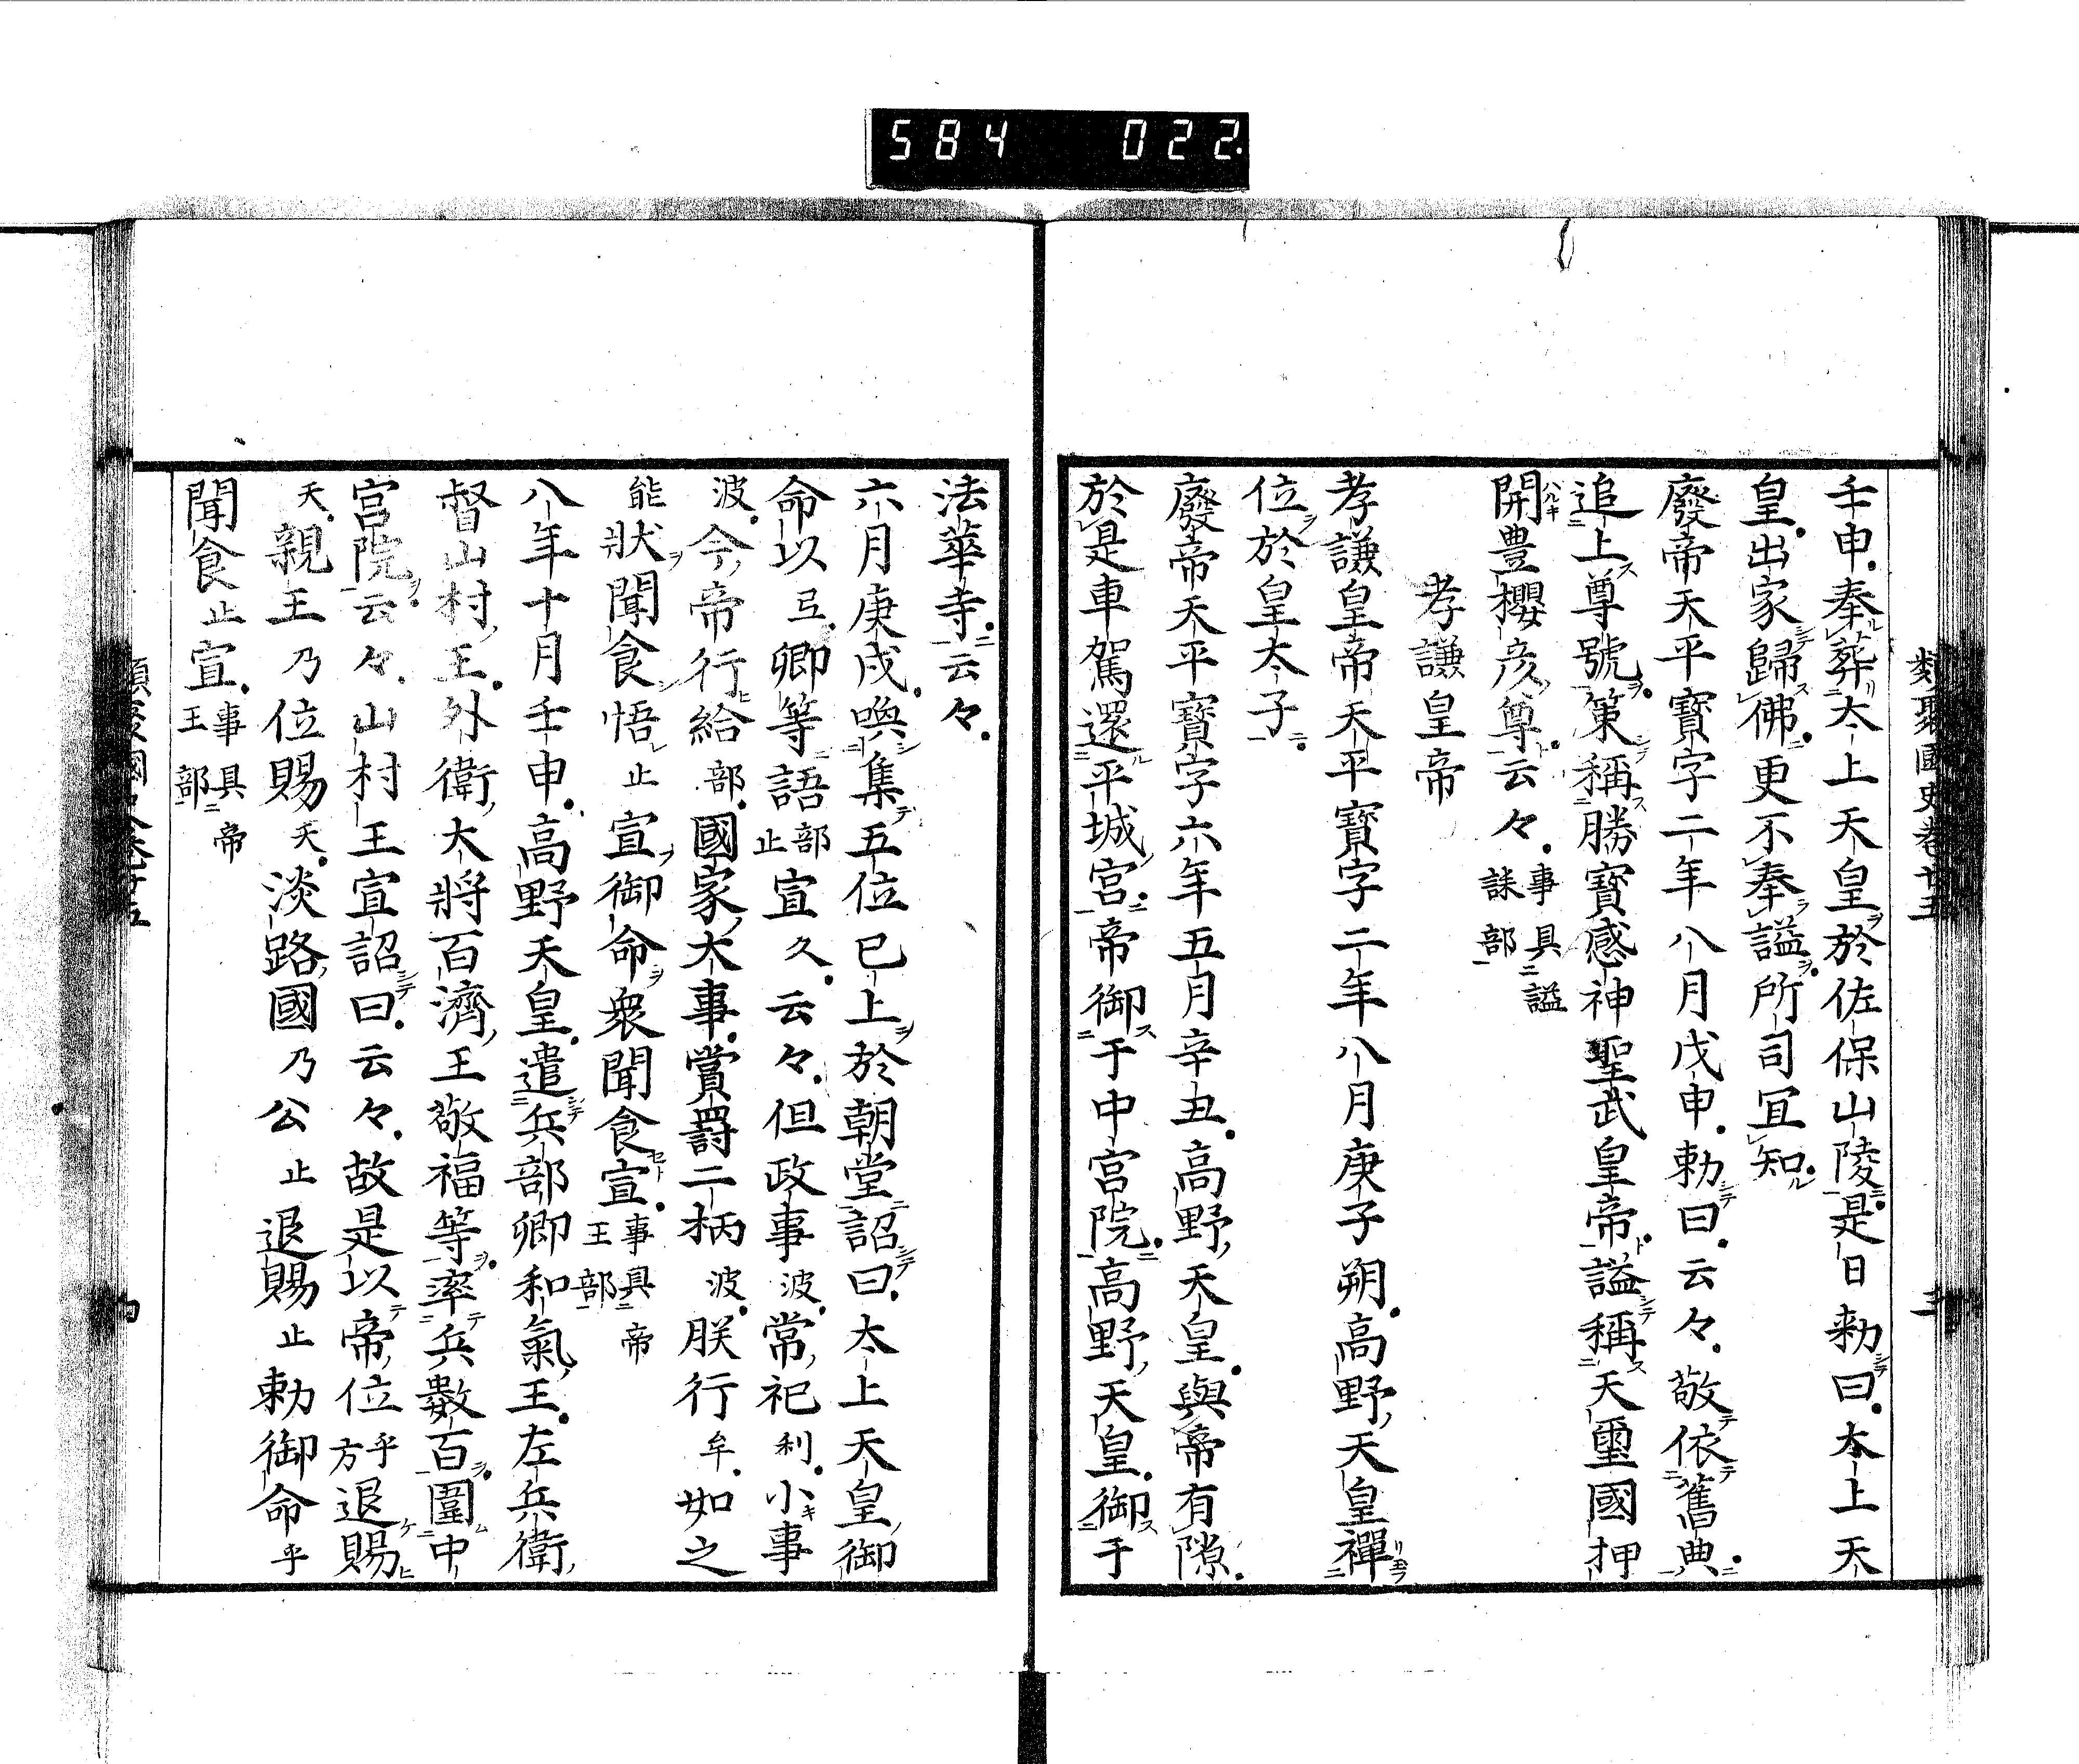 584 022
類聚國史卷廿五
三
壬申奉葬太上天皇於佐保山陵是日勅曰太上天
皇出家歸佛更不奉謚所司冝知
廢帝天平寶字二年八月戊申勅曰云々敬依舊典
追上尊號策稱勝寶感神聖武皇帝謚稱天璽國押
開豊櫻彦尊云々事具謚誄部
孝謙皇帝
孝謙皇帝天平寶字二年八月庚子朔高野天皇禪
位於皇太子
廢帝天平寶字六年五月辛丑高野天皇與帝有隙
於是車駕還平城宮帝御于中宮院高野天皇御于
法華寺云々
六月庚戌喚集五位已上於朝堂詔曰太上天皇御
命以弖卿等語部止宣久云々但政事波常祀利小事
波今帝行給部國家大事賞罸二柄波朕行牟如之
能狀聞食悟止宣御命衆聞食宣事具帝王部
八年十月壬申高野天皇遣兵部卿和氣王左兵衛
督山村王外衛大將百濟王敬福等率兵數百圍中
宮院云々山村王宣詔曰云々故是以帝位乎方退賜
天親王乃位賜天淡路國乃公止退賜止勅御命乎
聞食止宣事具帝王部